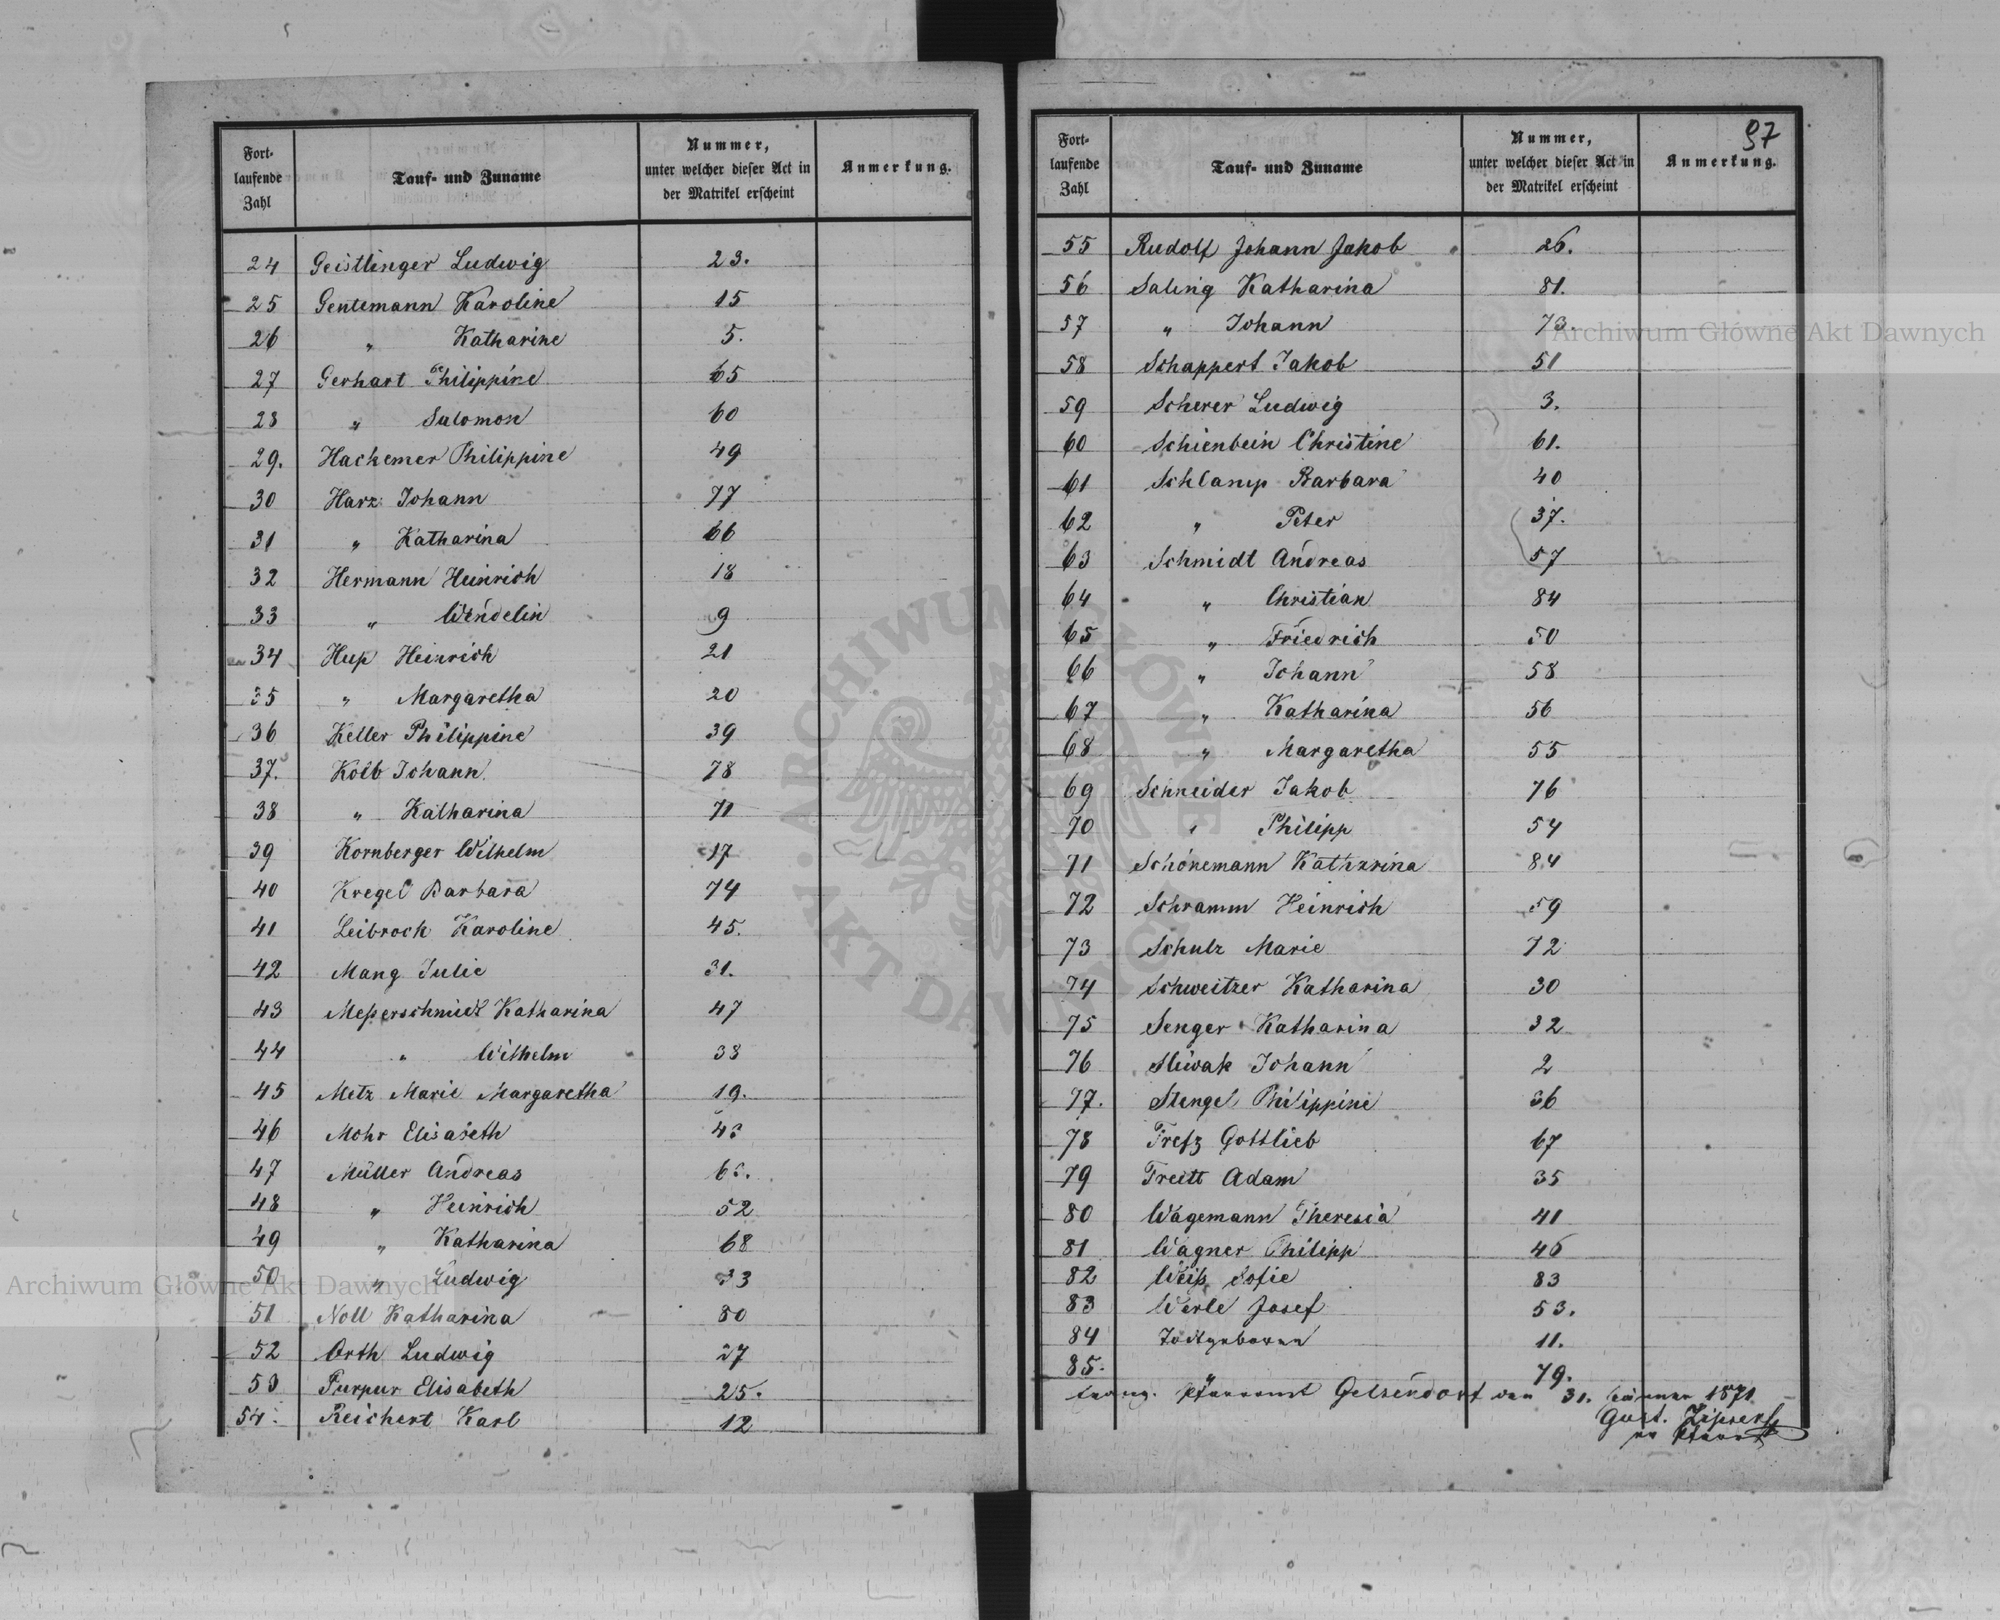 97
Fort-
laufende
Zahl
Tauf- und Zuname
Nummer,
unter welcher dieser Act in
der Matrikel erscheint
Anmerkung.
24 Geistlinger Ludwig 23.
25 Gentemann Karoline 15
26 " Katharine 5.
27 Gerhart Philippine 65
28 " Salomon 60
29. Hackemer Philippine 49
30 Harz Johann 77
31 " Katharina 66
32 Hermann Heinrich 18
33 " Wendelin 9
34 Hup Heinrich 21
35 " Margaretha 20
36 Keller Philippine 39
37. Kolb Johann 78
38 " Katharina 71
39 Kornberger Wilhelm 17
40 Kregel Barbara 74
41 Leibrock Karoline 45.
42 Mang Julie 31.
43 Meßerschmidt Katharina 47
44 " Wilhelm 38
45 Metz Marie Margaretha 19.
46 Mohr Elisabeth
47 Müller Andreas
48 " Heinrich 52
49 " Katharina 68
50 " Ludwig
51 Noll Katharina 80
52 Orth Ludwig 27
53 Purpur Elisabeth 25.
54. Reichert Karl 12
Fort-
laufende
Zahl
Tauf- und Zuname
Nummer,
unter welcher dieser Act in
der Matrikel erscheint
Anmerkung.
55 Rudolf Johann Jakob 26.
56 Saling Katharina 81.
57 " Johann 73.
58 Schappert Jakob 51
59 Scherer Ludwig 3.
60 Schienbein Christine 61.
61 Schlamp Barbara 40
62 " Peter 37.
63 Schmidt Andreas 57
64 " Christian 84
65 " Friedrich 50
66 " Johann 58
67 " Katharina 56
68 " Margaretha 55
69 Schneider Jakob 76
70 " Philipp 54
71 Schönemann Katharina 84
72 Schramm Heinrich 59
73 Schulz Marie 72
74 Schweitzer Katharina 30
75 Senger Katharina 32
76 Sliwak Johann 2
77. Stengel Philippine 36
78 Trefz Gottlieb 67
79 Treitt Adam 35
80 Wagemann Theresia 41
81 Wagner Philipp 46
82 Weiß Sofie 83
83 Werle Josef 53.
84 Todtgeboren 11.
85. " 79.
evang. Pfarramt Gelsendorf den 31. Jänner 1871
Gust.
Pfarrer
Archiwum Główne Akt Dawnych
Archiwum Główne Akt Dawnych
ARCHIWUM GŁÓWNE AKT DAWNYCH